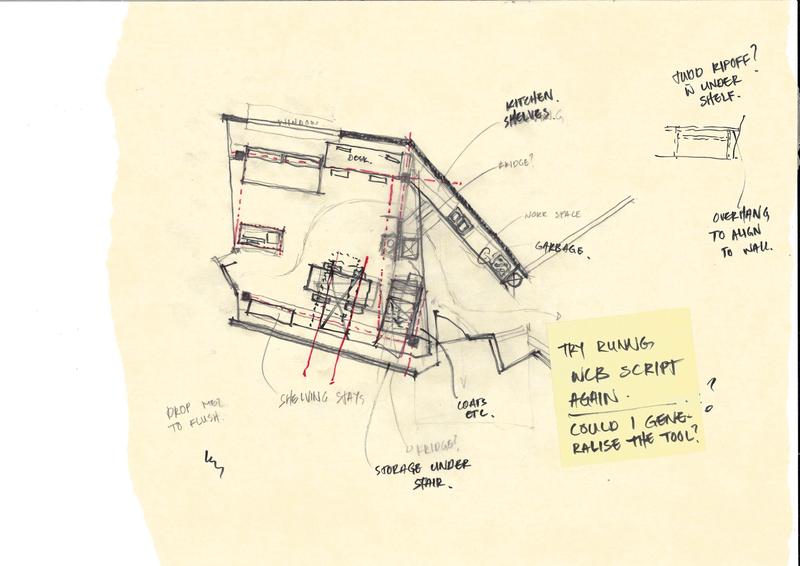 JUDD RIPOFF?
UNDER
SHELF.
KITCHEN.
SHELVES
WINDOW
DESK.
FRIDGE?
WORK SPACE
GARBAGE.
OVERHANG
TO ALIGN
TO WALL.
TRY RUNNG
WCB SCRIPT
AGAIN.
COULD I GENE-
RALISE THE TOOL?
?
SHELVING STAYS
DROP MEZ
TO FLUSH.
COATS
ETC.
FRIDGE?
STORAGE UNDER
STAIR.